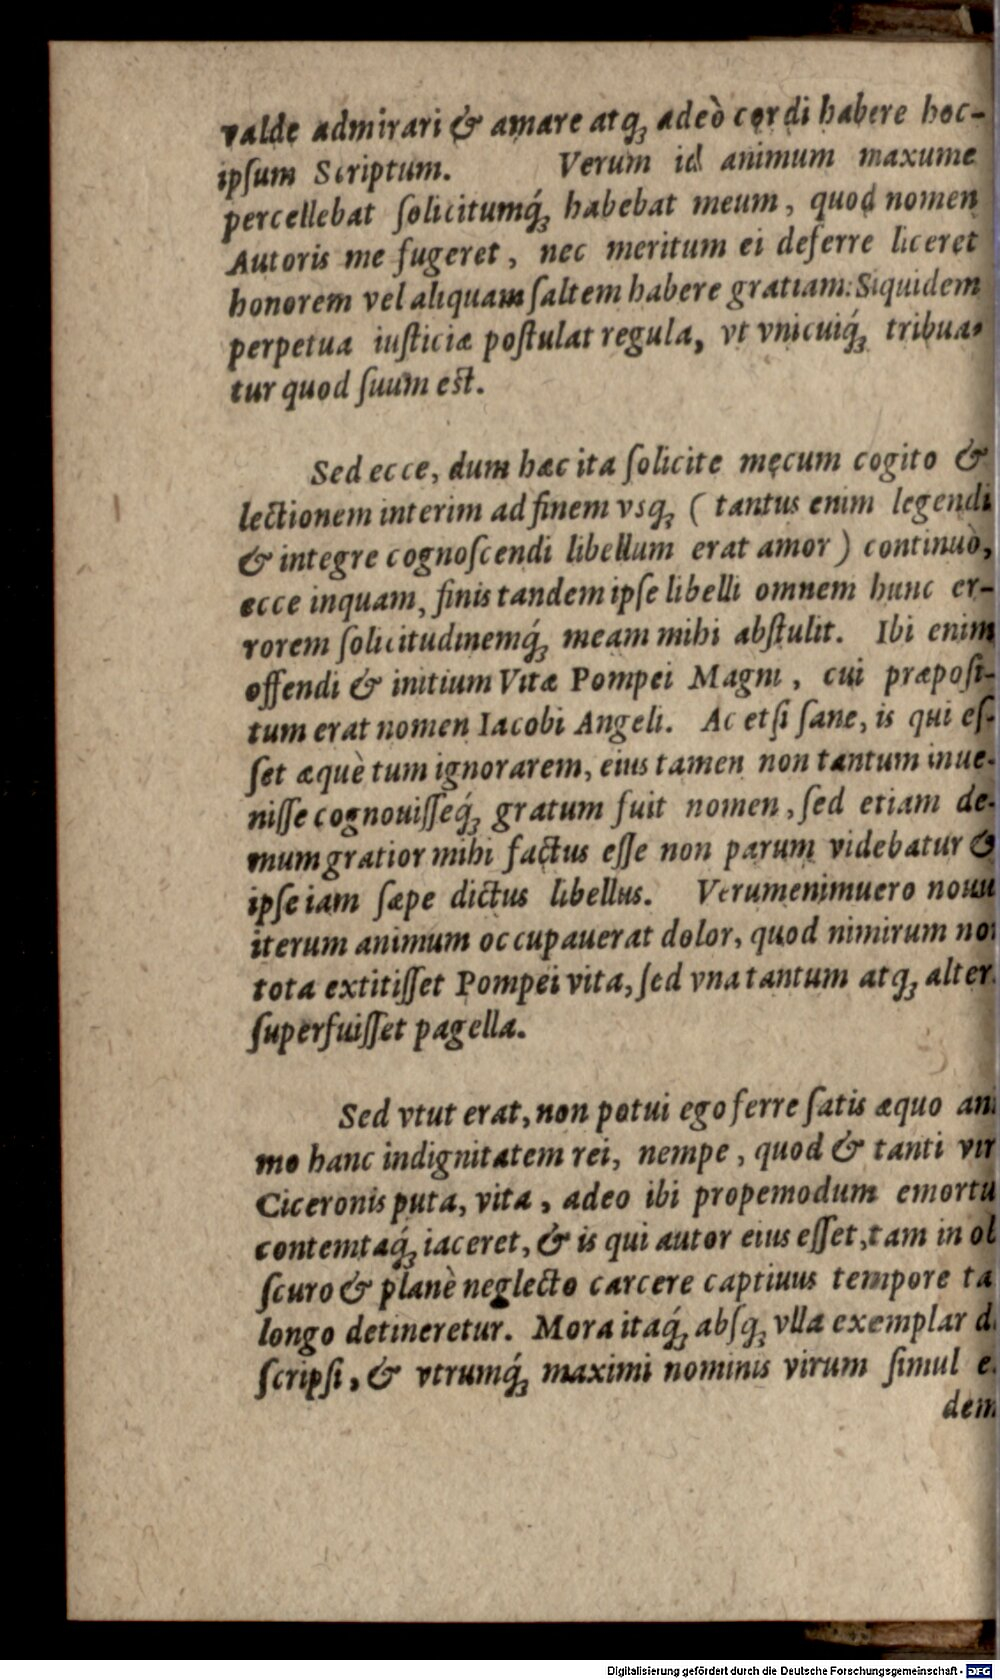 valde admirari & amare atq́ꝫ adeò cordi habere hoc-
ipſum Scriptum. Verum id animum maxume
percellebat ſolicitumq́ꝫ habebat meum, quod nomen
Autoris me fugeret, nec meritum ei deferre liceret
honorem vel aliquam ſaltem habere gratiam: Siquidem
perpetua iuſticiæ poſtulat regula, vt vnicuiq́ꝫ tribua-
tur quod ſuum eſt.
Sed ecce, dum hæc ita ſolicite mecum cogito &
lectionem interim ad finem vsqꝫ ( tantus enim legendi
& integre cognoſcendi libellum erat amor ) continuò,
ecce inquam, finis tandem ipſe libelli omnem hunc er-
rorem ſolicitudinemq́ꝫ meam mihi abſtulit. Ibi enim
offendi & initium Vitæ Pompei Magni, cui præpoſi-
tum erat nomen Iacobi Angeli. Ac etſi ſane, is qui eſ-
ſet æquè tum ignorarem, eius tamen non tantum inue-
niſſe cognouiſſeq́ꝫ gratum fuit nomen, ſed etiam de-
mum gratior mihi factus eſſe non parum videbatur &
ipſe iam ſæpe dictus libellus. Verumenimuero nouu
iterum animum occupauerat dolor, quod nimirum no
tota extitiſſet Pompei vita, ſed vna tantum atqꝫ alter
ſuperfuiſſet pagella.
Sed vtut erat, non potui ego ferre ſatis æquo ani
mo hanc indignitatem rei, nempe, quod & tanti vir
Ciceronis puta, vita, adeo ibi propemodum emortu
contemtaq́ꝫ iaceret, & is qui autor eius eſſet, tam in ob
ſcuro & planè neglecto carcere captiuus tempore ta
longo detineretur. Mora itaq́ꝫ abſqꝫ vlla exemplar d
ſcripſi, & vtrumq́ꝫ maximi nominis virum ſimul e
dem
Digitalisierung gefördert durch die Deutsche Forschungsgemeinschaft - DFG